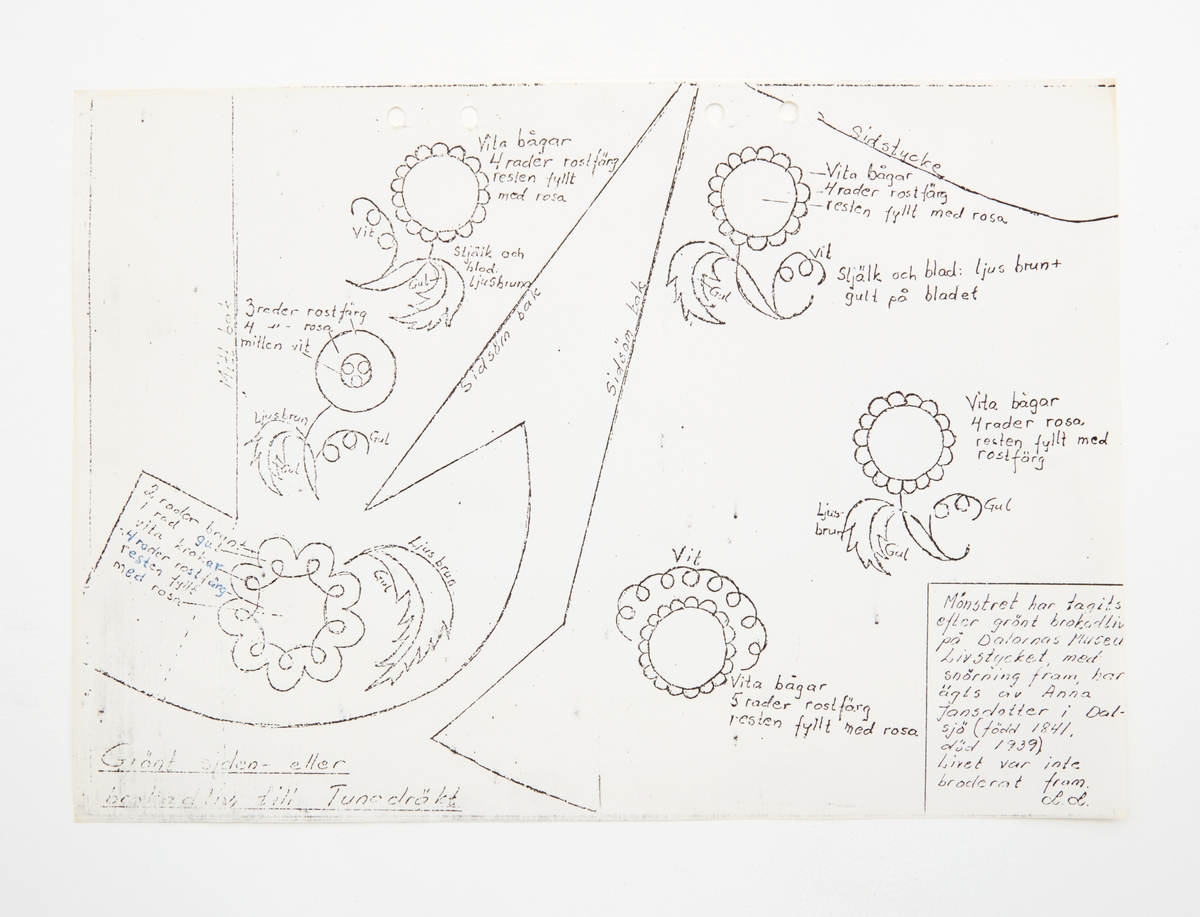 Vita bågar
4 rader rostfärg
resten fyllt
med rosa
Vit
Stjälk och
blad:
Ljusbruna
Gul
Sidstycke
Vita bågar
4 rader rostfärg
resten fyllt med rosa
Vit
Gul
Stjälk och blad: ljus brun+
gult på bladet
Mitt bak
Sidsöm bak
Sidsöm bak
3 rader rostfärg
4 -"- rosa
mitten vit
Ljusbrun
Gul
Gul
Vita bågar
4 rader rosa
resten fyllt med
rostfärg
Ljus-
brun
Gul
Gul
2 rader brunt
1 rad gul
vita krokar
4 rader rostfärg
resten fyllt
med rosa
Gul
Ljusbrun
Vit
Vita bågar
5 rader rostfärg
resten fyllt med rosa
Mönstret har tagits
efter grönt brokadliv
på Dalarnas Museu
Livstycket, med
snörning fram, har
ägts av Anna
Jansdotter i Dal-
sjö (född 1841,
död 1939)
Livet var inte
broderat fram.
Grönt siden- eller
brokadliv till Tunadräkt